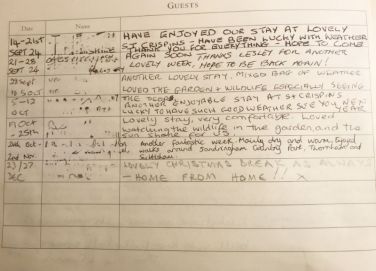 GUESTS
Date Name
14-21ST HAVE ENJOYED OUR STAY AT LOVELY
SEPT 24 ST CRISPINS - HAVE BEEN LUCKY WITH WEATHER
THANK YOU FOR EVERYTHING - HOPE TO COME
21-28 AGAIN SOON THANKS LESLEY FOR ANOTHER
SEPT 24 LOVELY WEEK, HOPE TO BE BACK AGAIN!
ANOTHER LOVELY STAY. MIXED BAG OF WEATHER
LOVED THE GARDEN & WILDLIFE ESPECIALLY SEEING
5-12 ANOTHER ENJOYABLE STAY AT ST CRISPINS
OCT LUCKY TO HAVE SUCH GOOD WEATHER SEE YOU NEXT YEAR
Lovely stay, very comfortable. Loved
- 25th watching the wildlife in the garden, and the
24th Oct - Another fantastic week. Mainly dry and warm, Enjoyed
2nd Nov. walks around Sandringham Thornham and
23/27 LOVELY CHRISTMAS BREAK AS ALWAYS
DEC - HOME FROM HOME!! X